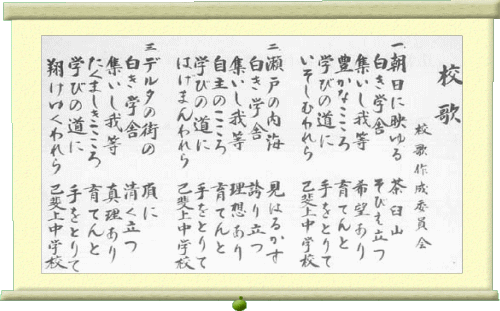 校歌
校歌作成委員会
一、朝日に映ゆる 茶臼山
白き学舎 そびえ立つ
集いし我等 希望あり
豊かなこころ 育てんと
学びの道に 手をとりて
いそしむわれら 己斐上中学校
二、瀬戸の内海 見はるかす
白き学舎 誇り立つ
集いし我等 理想あり
自主のこころ 育てんと
学びの道に 手をとりて
はげまんわれら 己斐上中学校
三、デルタの街の 頂に
白き学舎 清く立つ
集いし我等 真理あり
たくましきこころ 育てんと
学びの道に 手をとりて
翔けゆくわれら 己斐上中学校